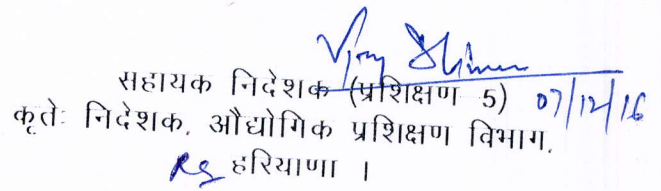 सहायक निदेशक (प्रशिक्षण 5) 07/12/16
कृतेः निदेशक, औद्योगिक प्रशिक्षण विभाग,
हरियाणा ।